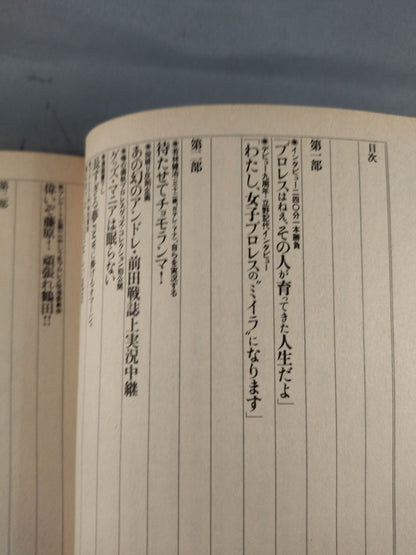 目次
第一部
●インタビュー二四〇分一本勝負
「プロレスはねえ、その人が育ってきた人生だよ」
●デビュー九周年・立野記代インタビュー
「わたし、女子プロレスの〝ミイラ〟になります」
第二部
待たせてチョモランマ!
あの幻のアンドレ・前田戦誌上実況中継
グッズ・マニアは眠らない
偉いぞ藤原!頑張れ鶴田!!